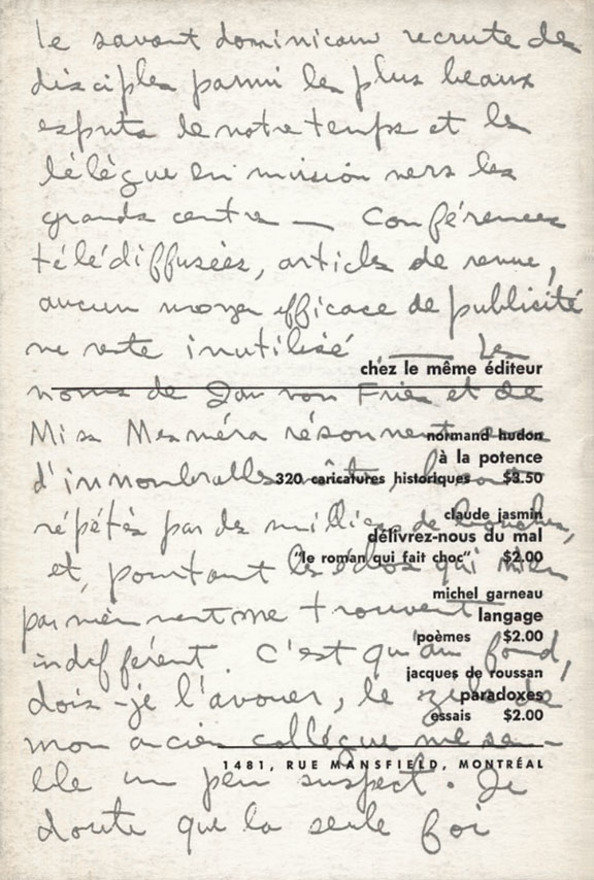 le savant dominicain recrute des
disciples parmi les plus beaux
esprits de notre temps et les
délègue en mission vers les
grands centres — Conférences
télédiffusées, articles de revue,
aucun moyen efficace de publicité
ne reste inutilisé — Les
noms de Jan von Fries et de
Miss Mesméra résonnent
d'innombrables
répétés par des milliers de bouches,
et, pourtant les échos qui m'en
parviennent me trouvent
indifférent. C'est qu'au fond,
dois-je l'avouer, le zèle de
mon ancien collègue me sem-
ble un peu suspect. Je
doute que la seule foi
chez le même éditeur
normand hudon
à la potence
320 caricatures historiques $3.50
claude jasmin
délivrez-nous du mal
"le roman qui fait choc" $2.00
michel garneau
langage
poèmes $2.00
jacques de roussan
paradoxes
essais $2.00
1481, RUE MANSFIELD, MONTRÉAL